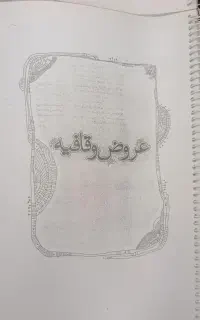 عروض و قافیه